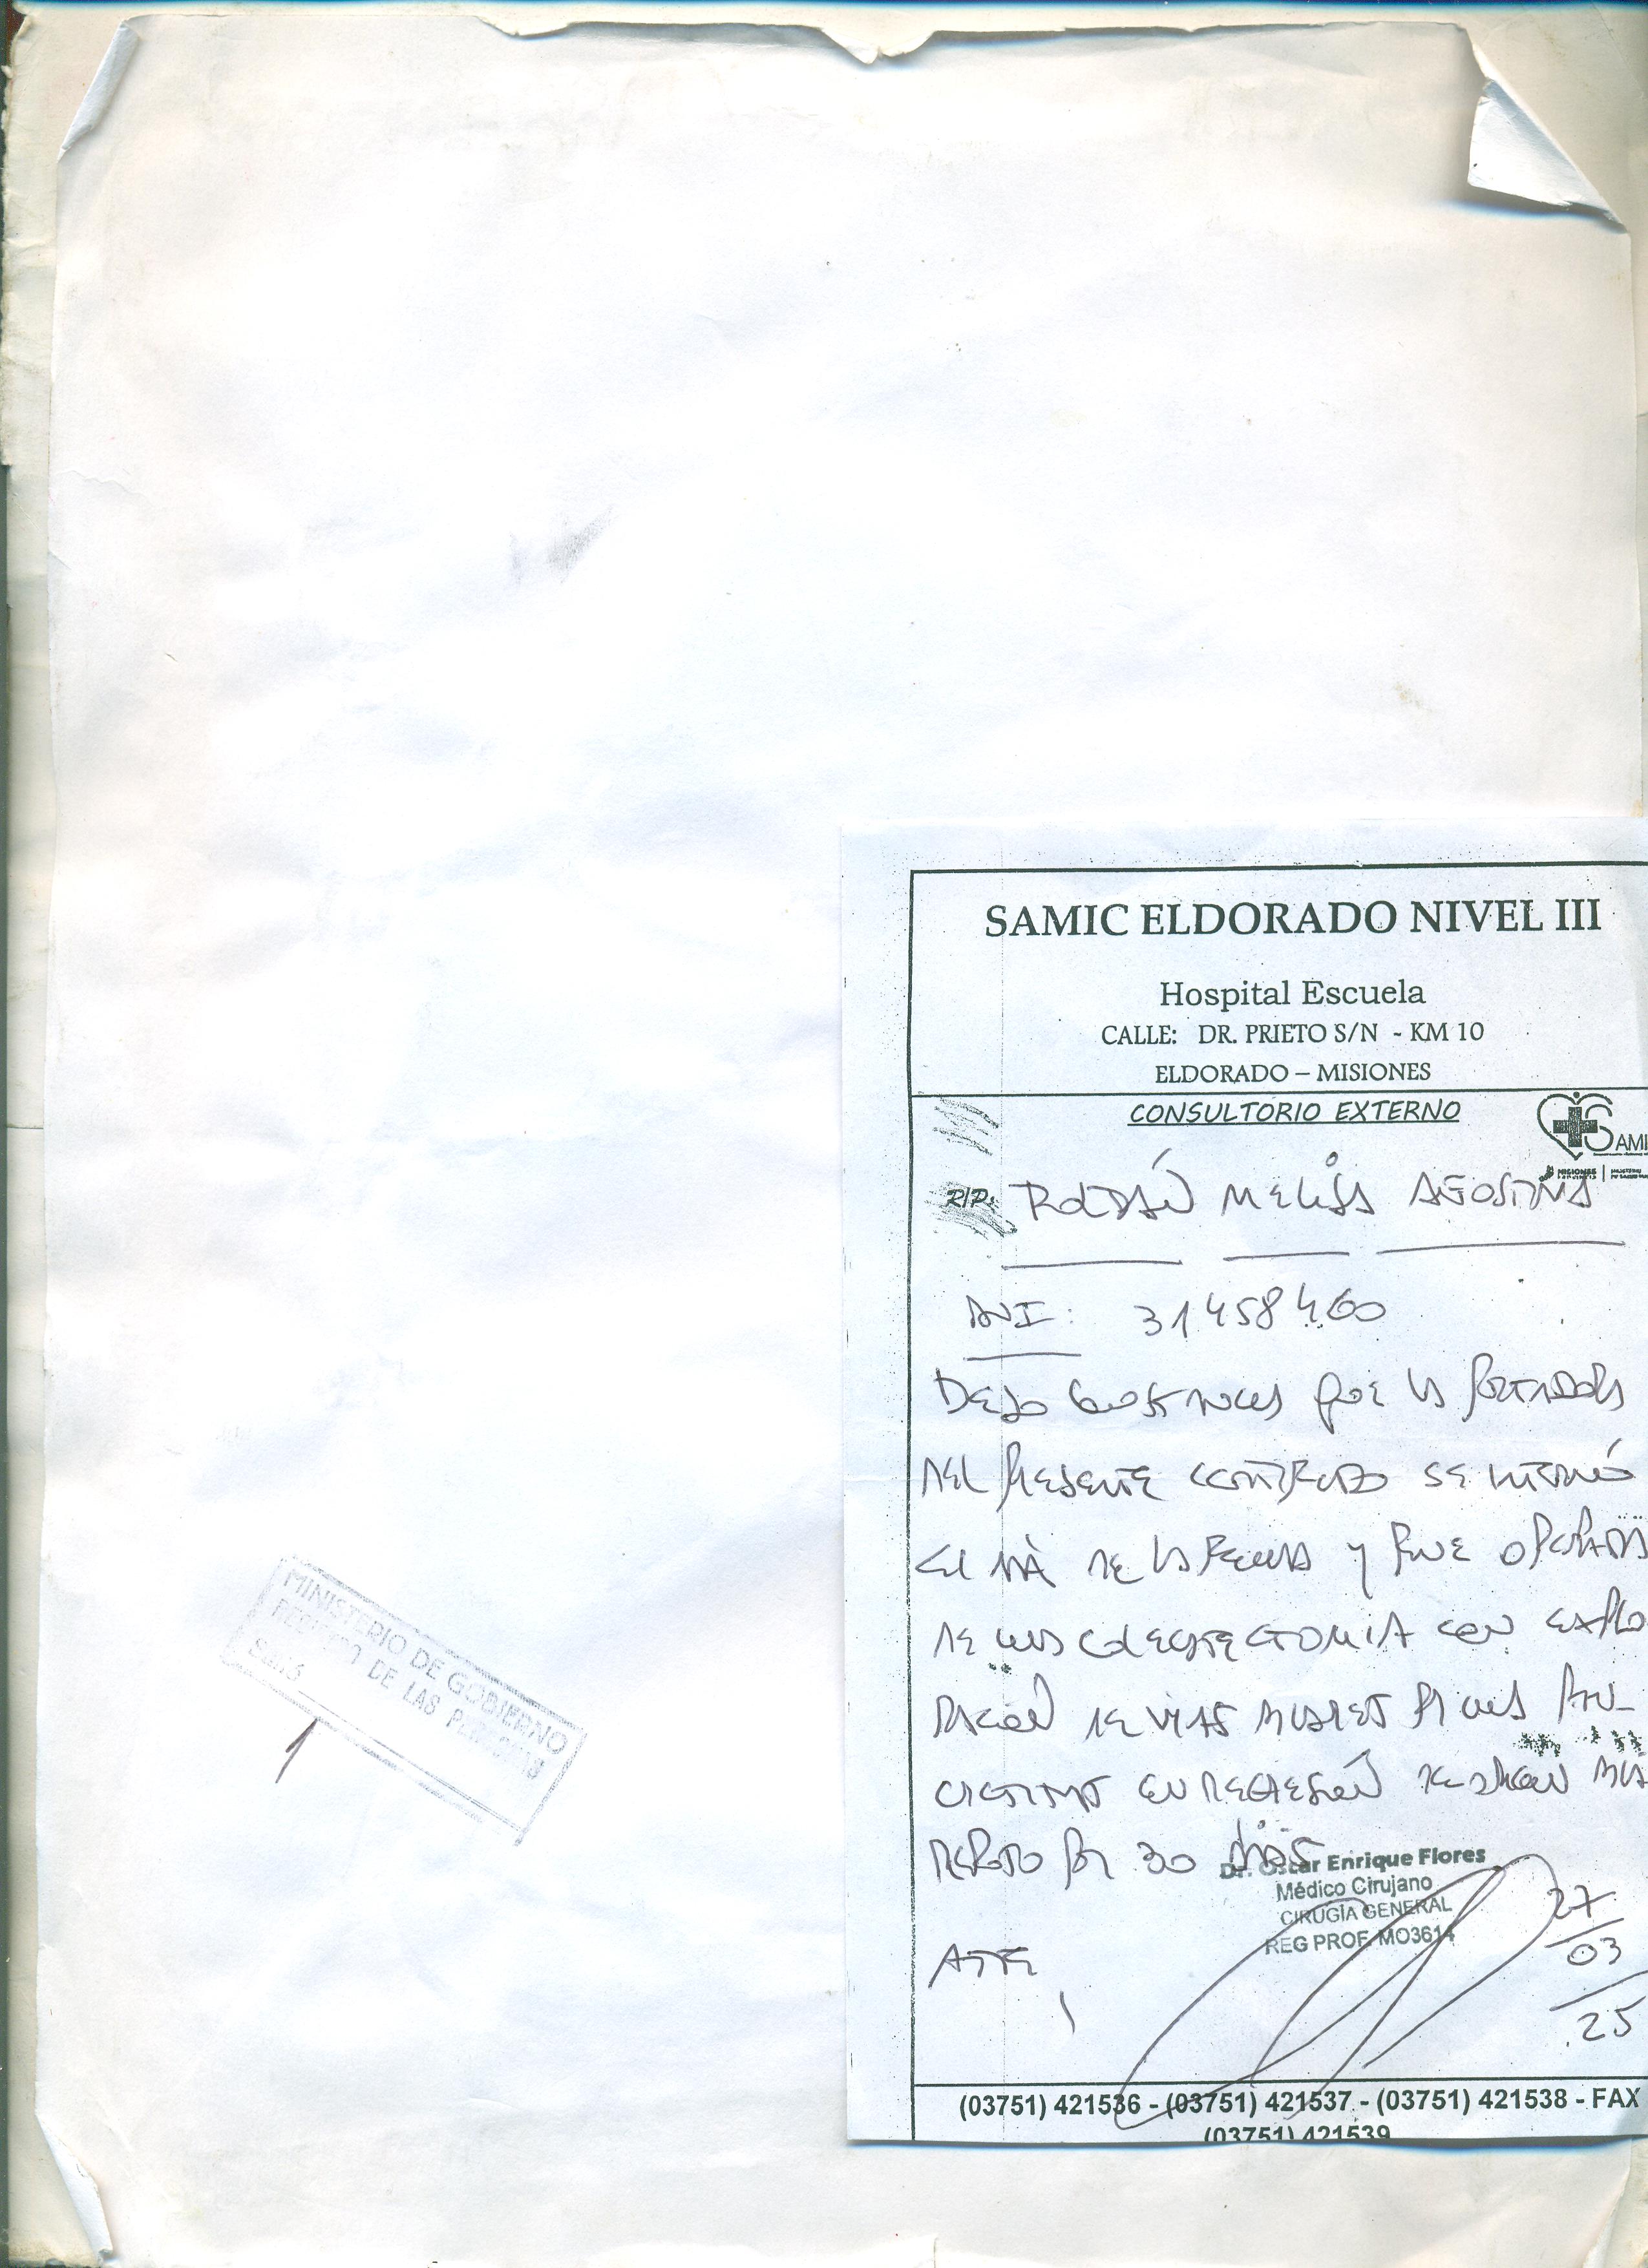 SAMIC ELDORADO NIVEL III
Hospital Escuela
CALLE: DR. PRIETO S/N - KM 10
ELDORADO – MISIONES
CONSULTORIO EXTERNO
SAMI
MISIONES
R/P: ROLDÁN MELISA AGOSTINA
DNI: 31458460
DEJO CONSTANCIA QUE LA PORTADORA
DEL PRESENTE CERTIFICADO SE INTERNÓ
EL DÍA DE LA FECHA Y FUE OPERADA
DE UNA COLECISTECTOMIA CON EXPLO
RACIÓN DE VIAS BILIARES
EN
REPOSO POR 30 DÍAS
Dr. Oscar Enrique Flores
Médico Cirujano
CIRUGÍA GENERAL
REG PROF. MO3614
27
03
25
ATTE
(03751) 421536 - (03751) 421537 - (03751) 421538 - FAX
(03751) 421539
MINISTERIO DE GOBIERNO
DE LAS
1